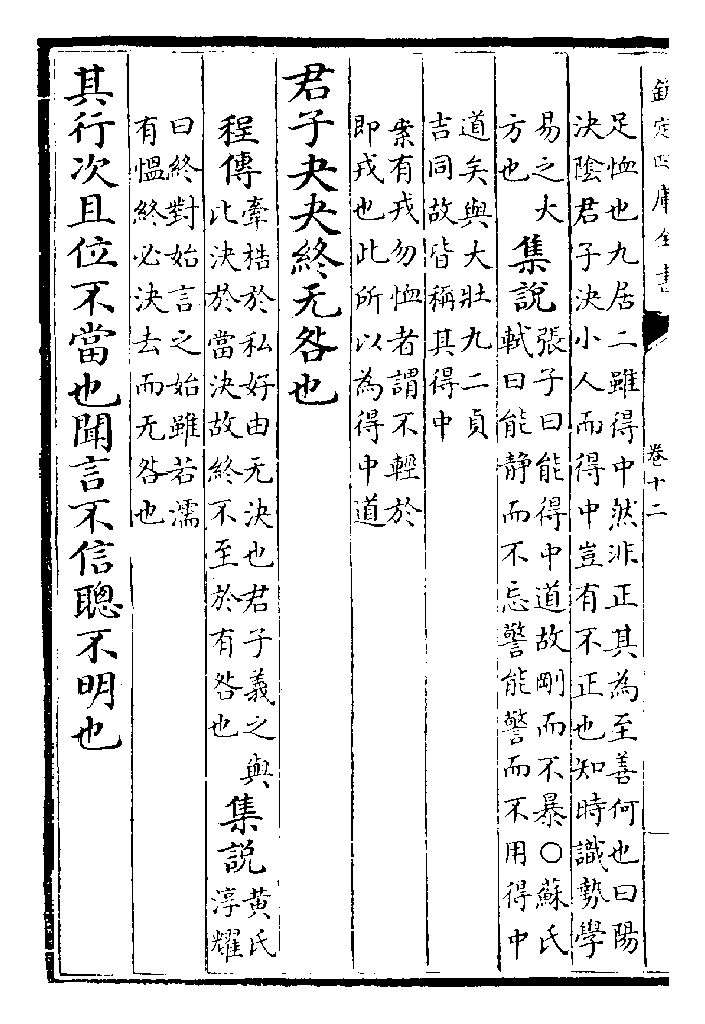 欽定四庫全書
卷十二
足恤也九居二雖得中然非正其為至善何也曰陽
決陰君子決小人而得中豈有不正也知時識勢學
易之大
方也
集說
張子曰能得中道故剛而不暴○蘇氏
軾曰能静而不忘警能警而不用得中
道矣與大壯九二貞
吉同故皆稱其得中
案有戎勿恤者謂不輕於
即戎也此所以為得中道
君子夬夬終无咎也
程傳
牽梏於私好由无決也君子義之與
比決於當決故終不至於有咎也
集説
黄氏
淳耀
曰終對始言之始雖若濡
有愠終必決去而无咎也
其行次且位不當也聞言不信聰不明也